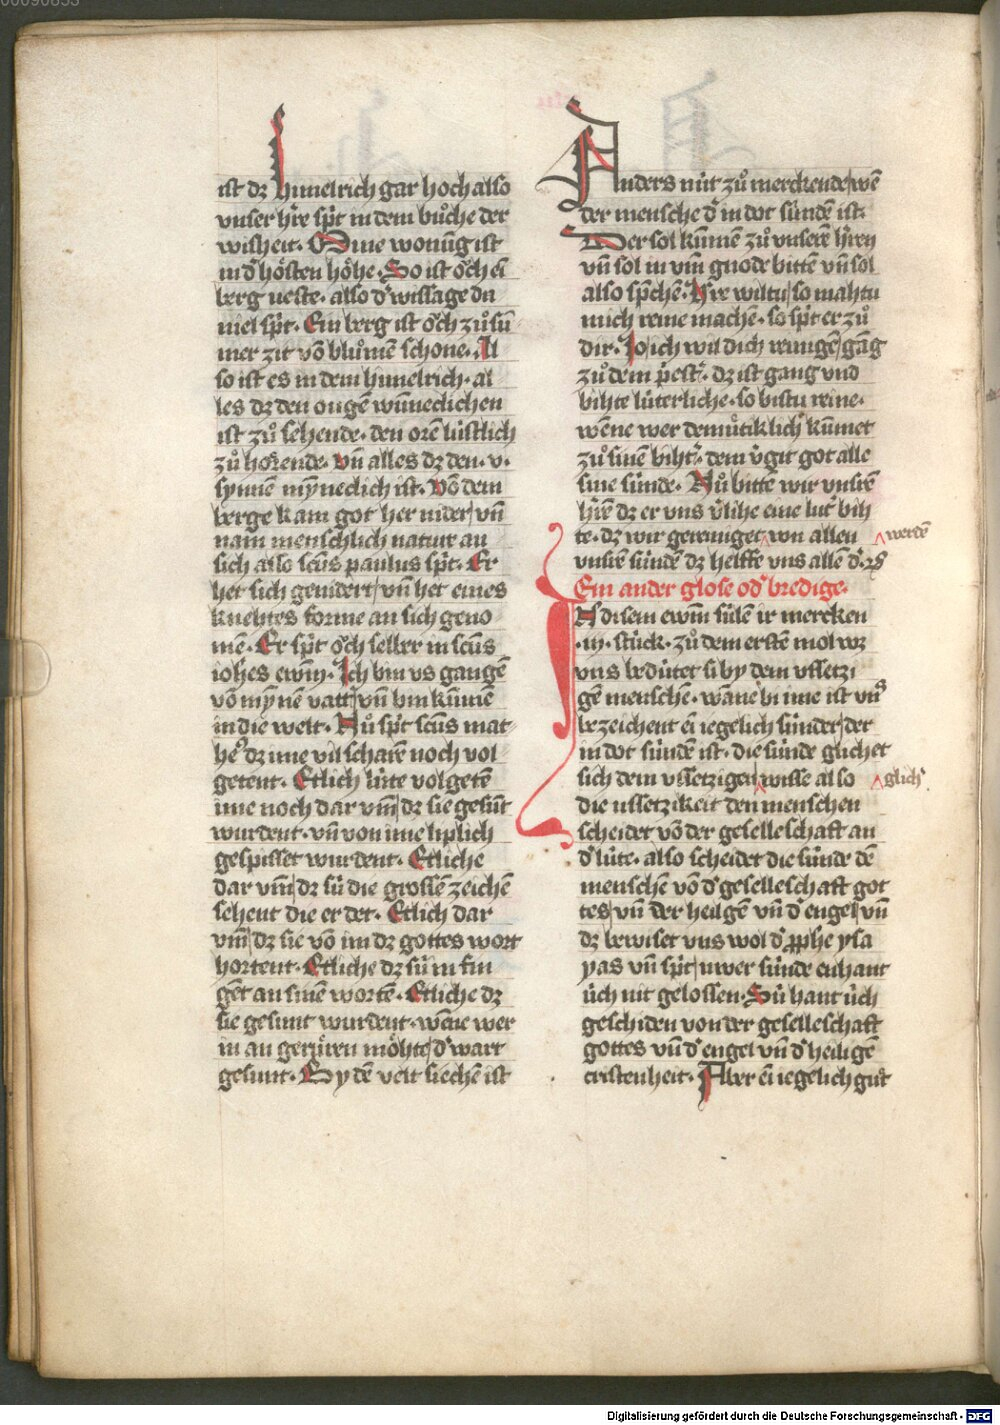 ist dz himelrich gar hoch also
vnser hr̄e sp̄t in dem bůche der
wisheit · Mine wonūg ist
in d̓ hösten höhe · So ist öch ei
berg veste · also d̓ wissage da
niel sp̄t · Ein berg ist öch zů sū
mer zit vō blůmē schone · Al
so ist es in dem himelrich · al
les dz den ougē wūneclichen
ist zů sehende · den orē lüstlich
zů hörende · vn̄ alles dz den · v ·
synnen mȳneclich ist · Vō dem
berge kam got her nider vn̄
nam menschlich natur an
sich also sc̄us paulus sp̄t · Er
het sich gemindert vn̄ het eines
knehtes forme an sich geno
mē · Er sp̄t öch selber in sc̄us
ioh̄es ewm̄ · Ich bin vs gangē
vō mȳnen vatt̓ vn̄ bin kūmē
in die welt · Nů sp̄t sc̄us mat
he⁹ dz ime vil scharē noch vol
getent · Etlich lüte volgetē
ime noch dar vm̄ dz sie gesūt
wurdent · vn̄ von ime liplich
gespisset wurdent · Etliche
dar vm̄ dz sü die grossen zeichē
sehent die er det · Etlich dar
vm̄ dz sie vō im dz gottes wort
hortent · Etliche dz sü in fin
gēt an sinē wortē · Etliche dz
sie gesunt wurdent · wēne wer
in an gerüren möhte d̓ wart
gesunt · By dē velt siechē ist
Anders nüt zů merckende wē
der mensche d̓ in dot sündē ist ·
Der sol kūmē zů vnserē hr̄en
vn̄ sol in vm̄ gnode bittē vn̄ sol
also sp̄chē · Hr̄e wiltu so mahtu
mich reine machē · so sp̄t er zů
dir · Jo ich wil dich reinigē gāg
zů dem p̄est̓ · dz ist gang vnd
bihte lüterliche · so bistu reine ·
wēne wer demůtiklich kūmet
zů sinē biht̓ · dem v̓git got alle
sine sünde · Nů bittē wir vnserē
hr̄ē dz er vns v̓lihe eine lut̓ bih
te · dz wir gereiniget von allen
werdē
vnserē sündē dz helffe vns allē d̓ · rc̄
Ein ander glose od̓ bredige ·
IN disem ewm̄ süllē ir mercken
· iii · stück · zů dem erstē mol wz
vns bedütet si by dem vssetzi
gē mensche · wāne bi ime ist vn̄s
bezeichent ei iegelich sünder der
in dot sündē ist · die sünde glichet
sich dem vssetzigen wisse also
glich̓
die vssetzikeit den menschen
scheidet vō der geselleschaft an
d̓ lüte · also scheidet die sünde dē
menschē vō d̓ geselleschaft got
tes vn̄ der heilgē vn̄ d̓ engel vn̄
dz bewiset vns wol d̓ p̄phe ysa
yas vn̄ sp̄t uwer sünde enhant
üch nit gelossen · Sü hant üch
gescheiden von der geselleschaft
gottes vn̄ d̓ engel vn̄ d̓ heiligē
cristenheit · Aber ei iegelich gůt
Digitalisierung gefördert durch die Deutsche Forschungsgemeinschaft - DFG